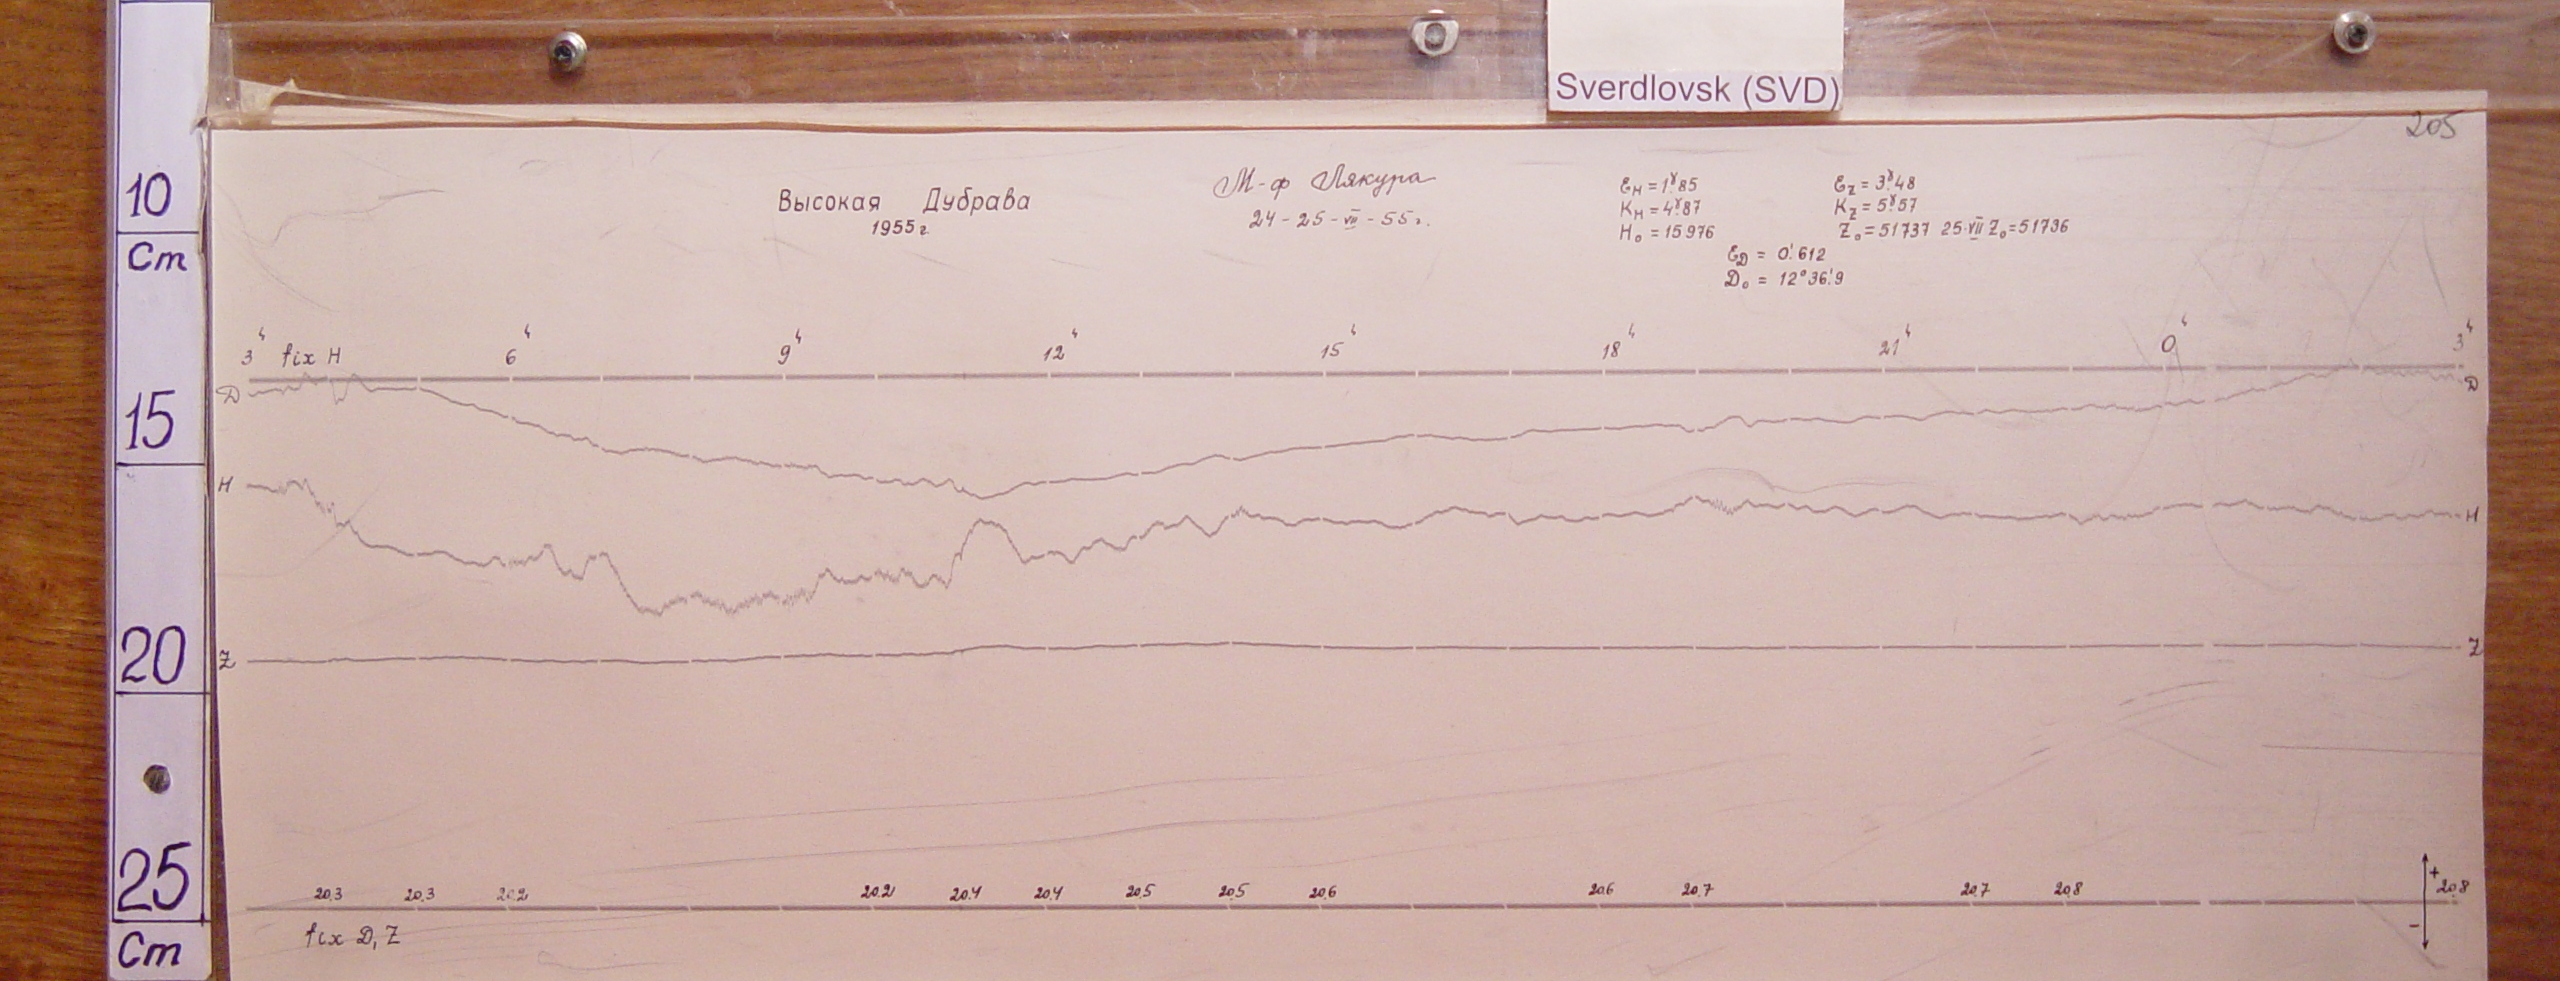 Sverdlovsk (SVD)
205
10
Cm
15
20
25
Cm
Высокая Дубрава
1955 г.
М-ф Лякура
24-25-VII-55 г.
Ɛн = 1ˠ.85
Kн = 4ˠ.87
H₀ = 15976
Ɛz = 3ˠ.48
Kz = 5ˠ.57
Z₀ = 51737 25·VII Z₀=51736
ƐD = 0'.612
D₀ = 12°36'.9
3ч fix H 6ч 9ч 12ч 15ч 18ч 21ч 0ч 3ч
D D
H H
Z Z
20.3 20.3 20.2 20.2 20.4 20.4 20.5 20.5 20.6 20.6 20.7 20.7 20.8 20.8
+
−
fix D, Z